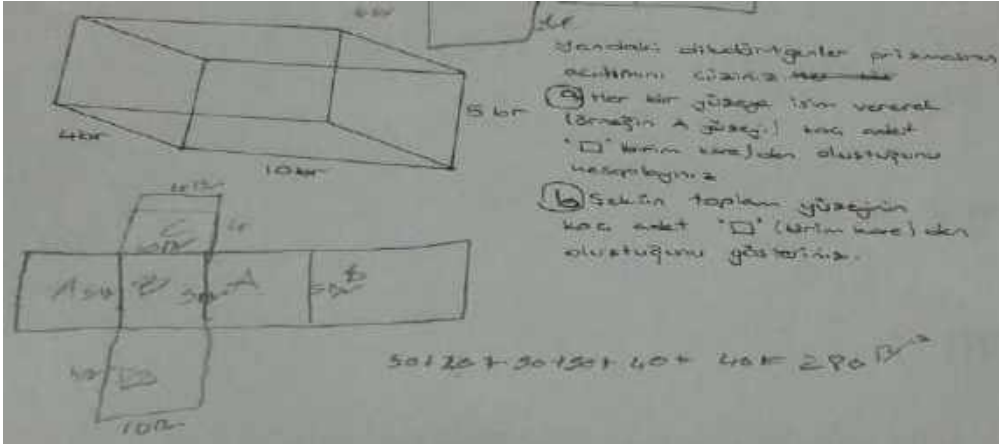 4br
Yandaki dikdörtgenler prizmasının
açılımını çiziniz
a) Her bir yüzeye isim vererek
(örneğin A yüzeyi) kaç adet
"□" birim kare)'den oluştuğunu
hesaplayınız
b) Şeklin toplam yüzeyinin
kaç adet "□" (birim kare)'den
oluştuğunu gösteriniz.
5 br
4br
10br
C
A
B
A
B
D
10br
50+20+50+50+40+ 40= 280 Br²